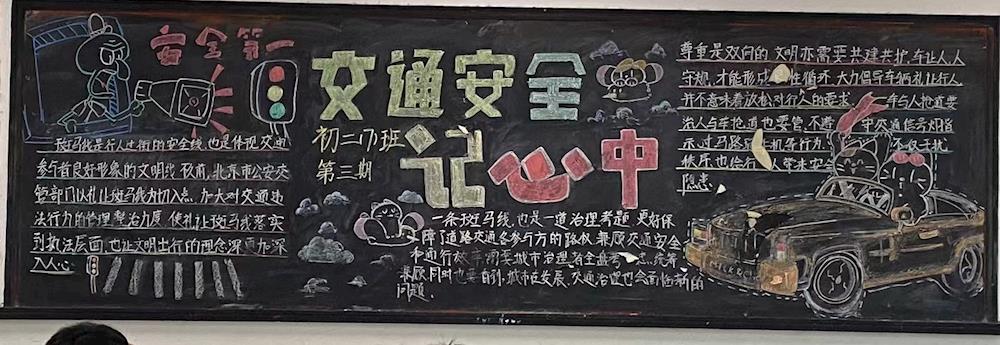 安全第一
斑马线是行人过街的安全线,也是体现交通
参与者良好形象的文明线 收前,北京市公安交
管部门以礼让斑马线为切入点,加大对交通违
法行为的管理整治力度,使礼让斑马线落实
到执法层面,也让文明出行的理念深更加深
入人心
交通安全
记心中
初二(7)班
第三期
一条斑马线,也是一道治理考题 更好保
障了道路交通各参与方的路权 兼顾交通安全
和通行效率 需要城市治理者全盘考 统筹
兼顾同时也要看到,城市在发展,交通治理也会面临新的
问题.
尊重是双向的 文明亦需要共建共护,车让人,人
守规,才能形成 性循环 大力倡导车辆礼让行人
并不意味着放松对行人的要求, 车与人抢道要
治 人与车抢道也要管,不看 中交通信号灯指
示 过马路 机等行为 不仅干扰
秩序 也给行人带来安全
隐患,